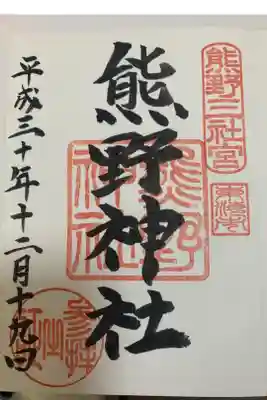 熊野三社宮
熊野神社
熊野神社
平成三十年十二月十九日
参拝